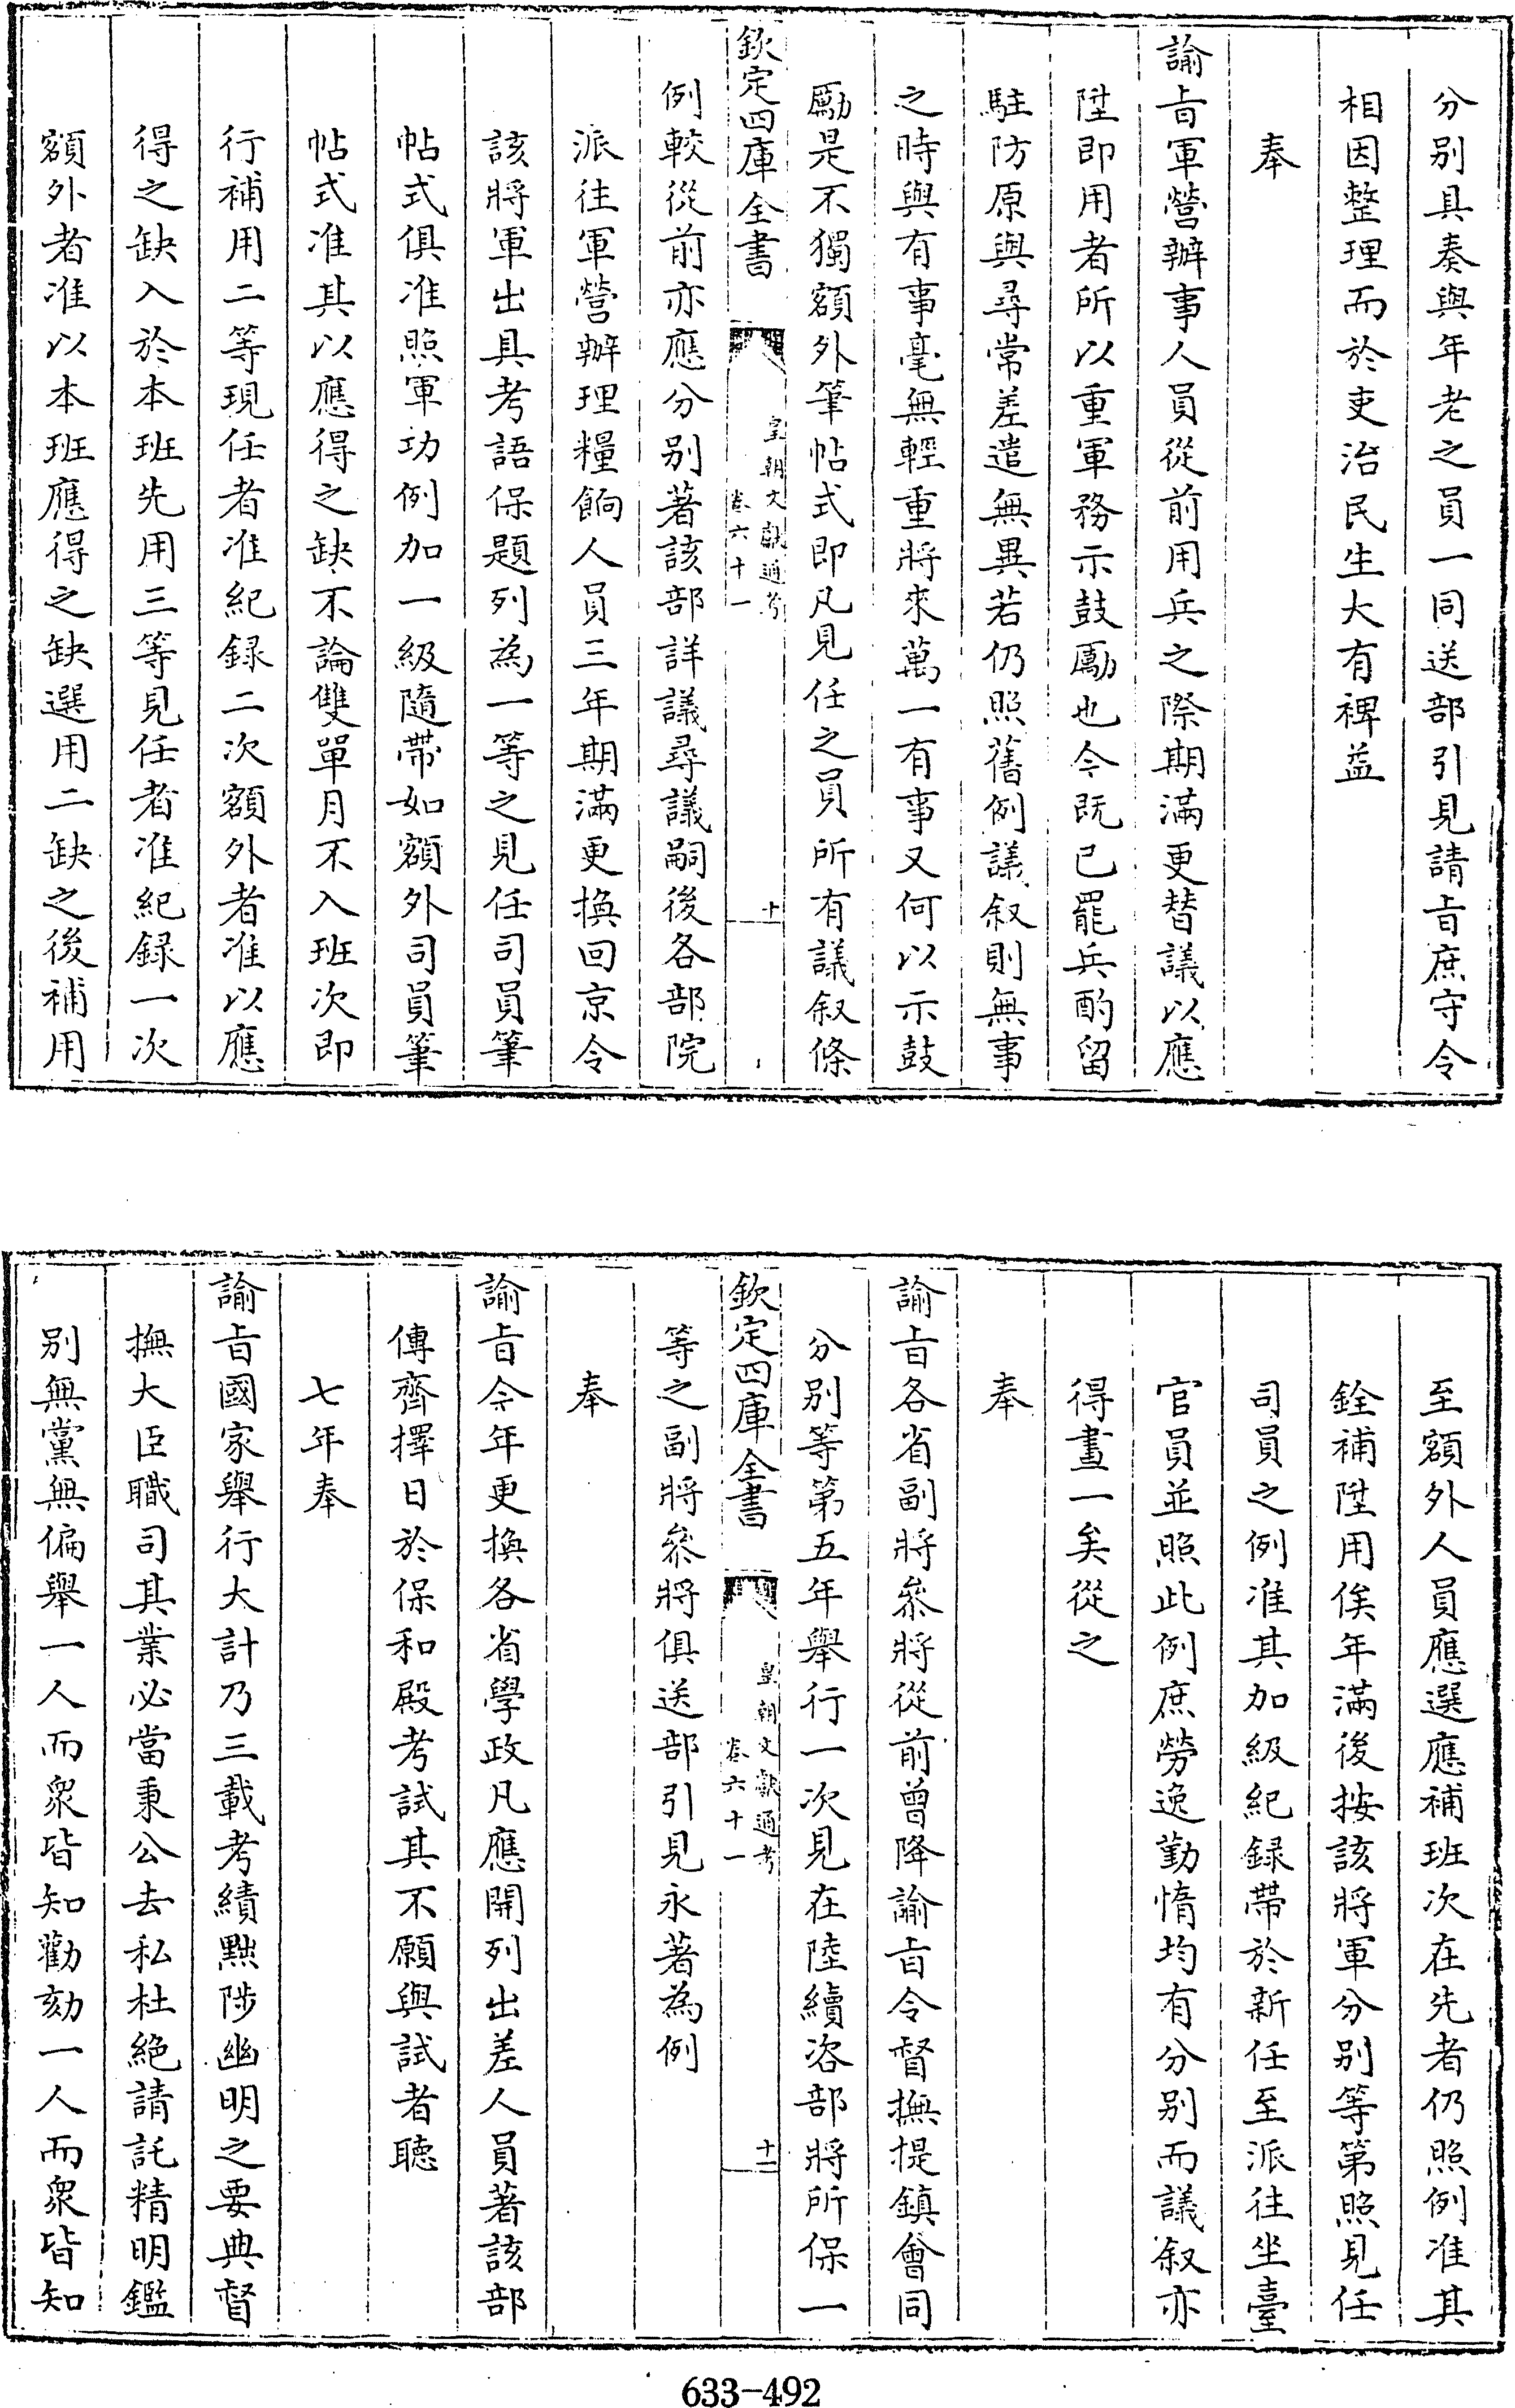 分别具奏與年老之員一同送部引見請㫖庶守令
相因整理而於吏治民生大有裨益
奉
諭㫖軍營辦事人員從前用兵之際期滿更替議以應
陞即用者所以重軍務示鼓勵也今既已罷兵酌留
駐防原與尋常差遣無異若仍照舊例議叙則無事
之時與有事毫無輕重將來萬一有事又何以示鼓
勵是不獨額外筆帖式即凡見任之員所有議叙條
欽定四庫全書
皇朝文獻通考
卷六十一
十
例較從前亦應分别著該部詳議尋議嗣後各部院
派往軍營辦理糧餉人員三年期滿更換回京令
該將軍出具考語保題列為一等之見任司員筆
帖式俱准照軍功例加一級隨帶如額外司員筆
帖式准其以應得之缺不論雙單月不入班次即
行補用二等現任者准紀録二次額外者准以應
得之缺入於本班先用三等見任者准紀録一次
額外者准以本班應得之缺選用二缺之後補用
至額外人員應選應補班次在先者仍照例准其
銓補陞用俟年滿後按該將軍分别等第照見任
司員之例准其加級紀録帶於新任至派往坐臺
官員並照此例庶勞逸勤惰均有分别而議叙亦
得畫一矣從之
奉
諭㫖各省副將叅將從前曾降諭㫖令督撫提鎮會同
分别等第五年舉行一次見在陸續咨部將所保一
欽定四庫全書
皇朝文獻通考
卷六十一
十一
等之副將叅將俱送部引見永著為例
奉
諭㫖今年更換各省學政凡應開列出差人員著該部
傳齊擇日於保和殿考試其不願與試者聽
七年奉
諭㫖國家舉行大計乃三載考績黜陟幽明之要典督
撫大臣職司其業必當秉公去私杜絶請託精明鑑
别無黨無偏舉一人而衆皆知勸劾一人而衆皆知
633-492